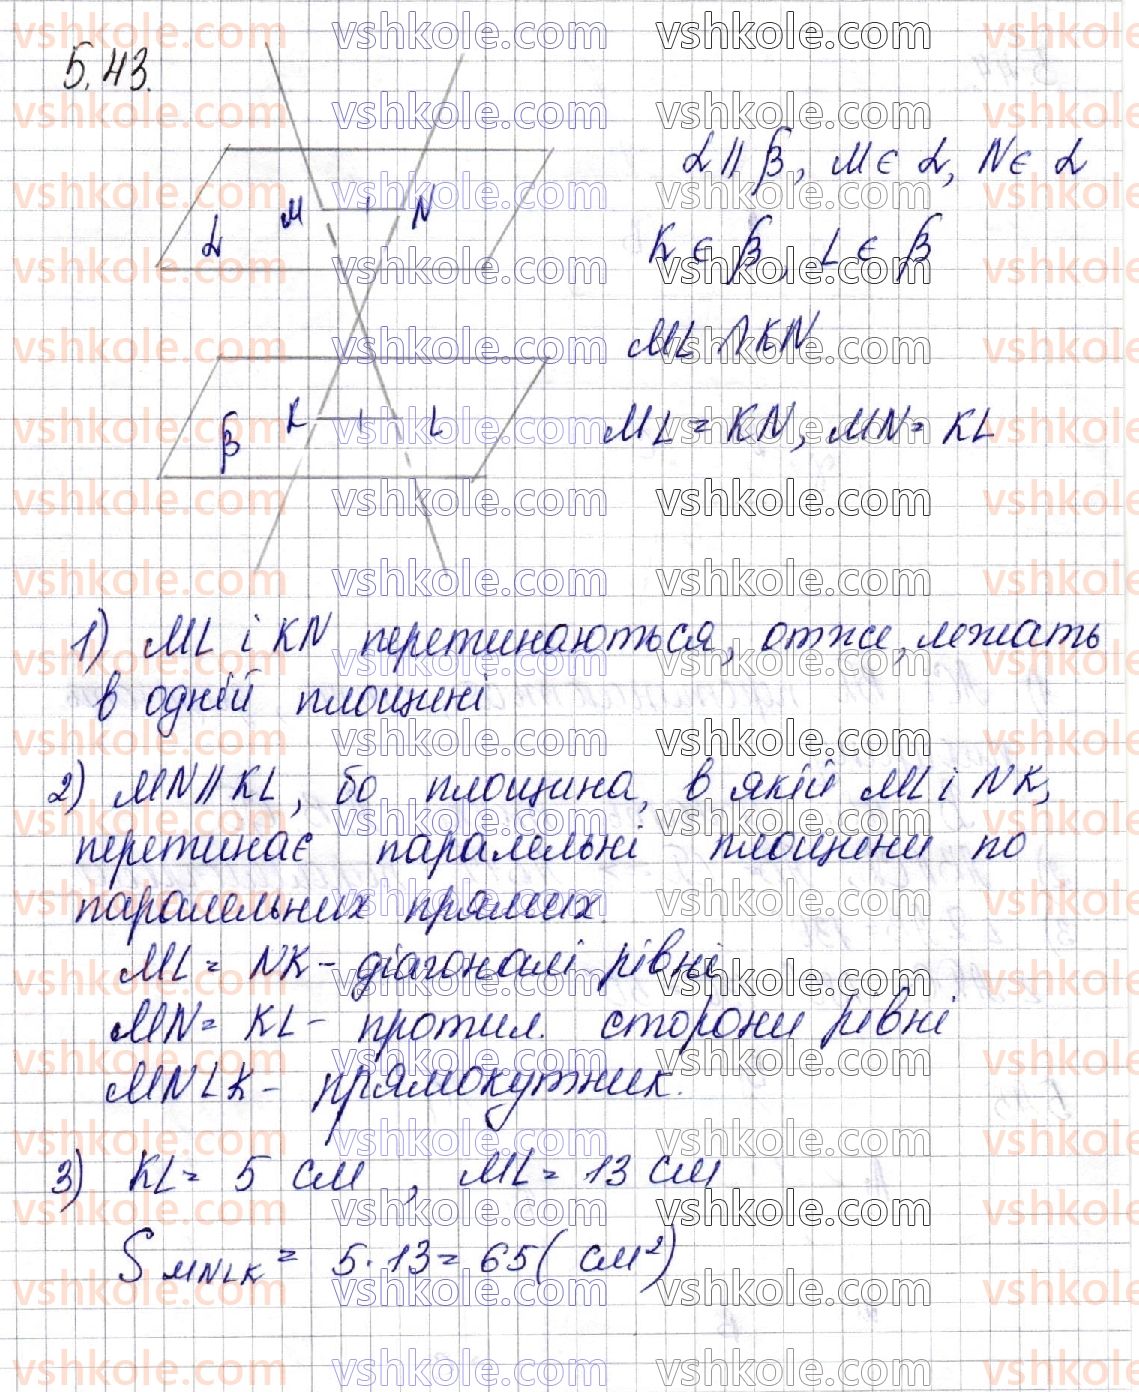 5.43.
α || β, M ∈ α, N ∈ α
K ∈ β, L ∈ β
ML ∩ KN
ML = KN, MN = KL
M N
α
K L
β
1) ML і KN перетинаються, отже, лежать
в одній площині
2) MN || KL, бо площина, в якій ML і NK,
перетинає паралельні площини по
паралельних прямих.
ML = NK - діагоналі рівні
MN = KL - протил. сторони рівні
MNLK - прямокутник.
3) KL = 5 см, ML = 13 см
S MNLK = 5·13 = 65 (см²)
vshkole.com